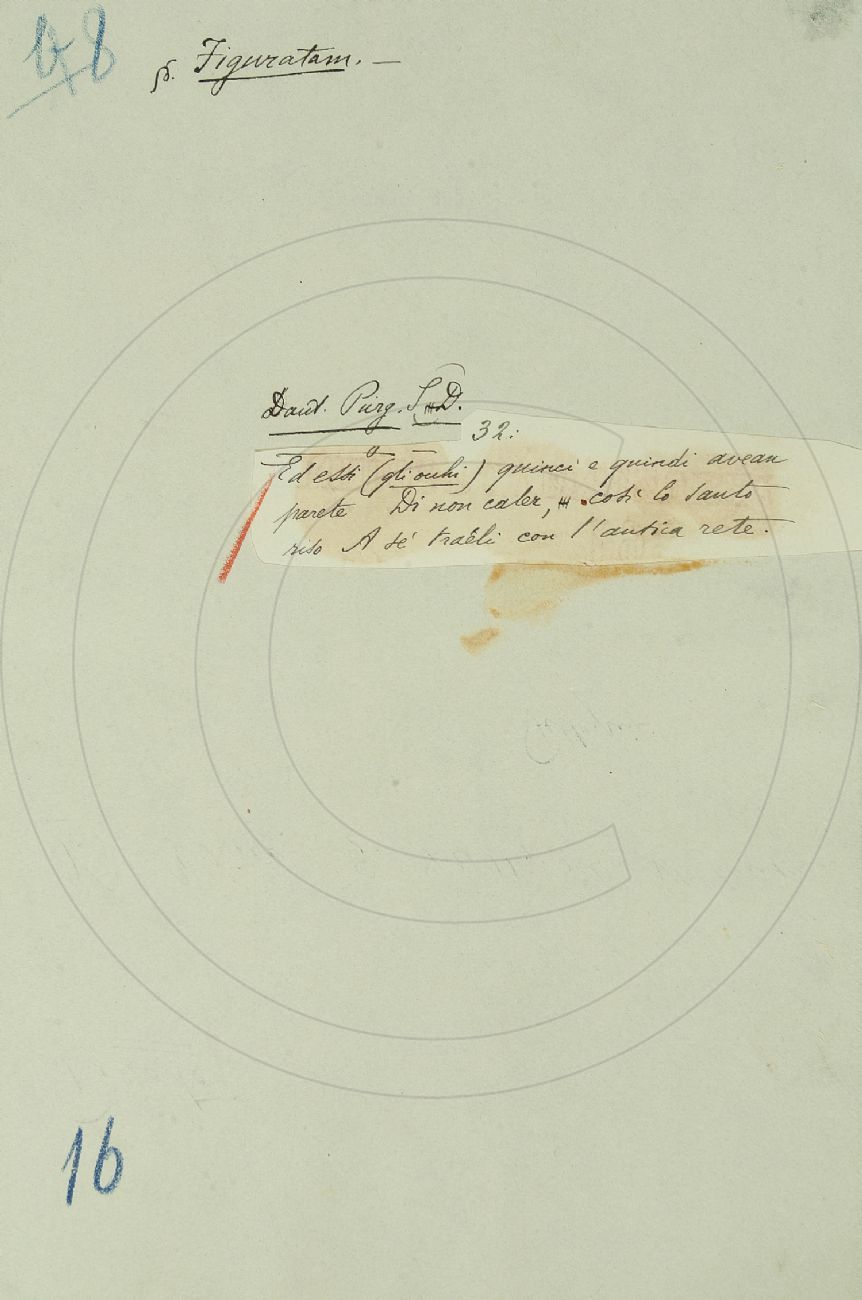 §. Figuratam. —
Dant. Purg. S. D.
32:
Ed essi (gli occhi) quinci e quindi avean
parete Di non caler, – così lo santo
riso A sé traéli con l'antica rete.
16